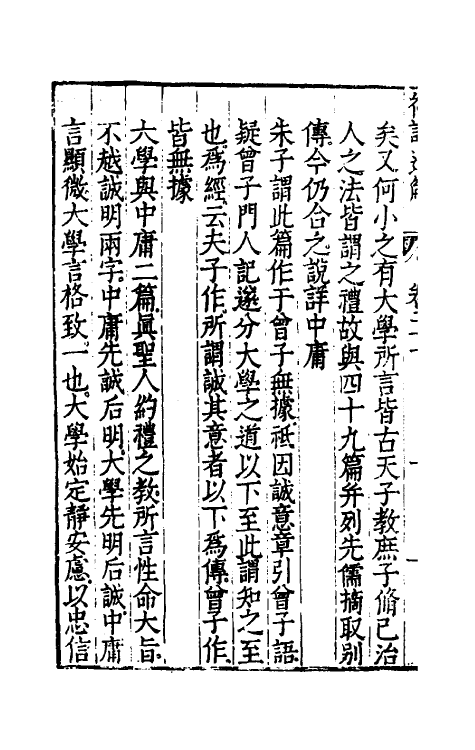 矣又何小之有大學所言皆古天子教庶子脩己治
人之法皆謂之禮故與四十九篇并列先儒摘取別
傳今仍合之說詳中庸
朱子謂此篇作于曾子無據祗因誠意章引曾子語
疑曾子門人記遂分大學之道以下至此謂知之至
也爲經云夫子作所謂誠其意者以下爲傳曾子作
皆無據
大學與中庸二篇眞聖人約禮之教所言性命大旨
不越誠明兩字中庸先誠后明大學先明后誠中庸
言顯微大學言格致一也大學始定靜安慮以忠信